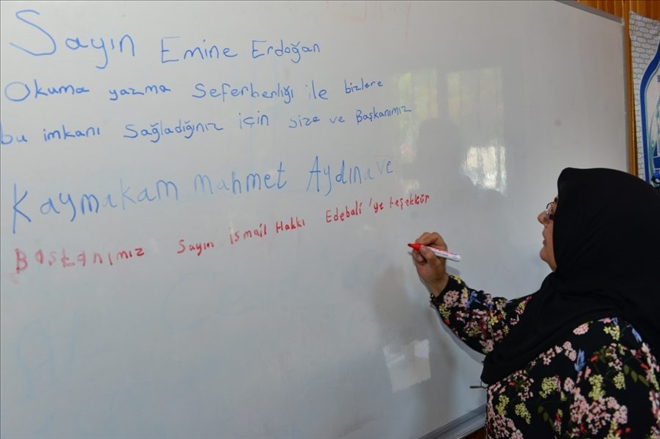 Sayın Emine Erdoğan
Okuma yazma Seferberliği ile bizlere
bu imkanı Sağladığınız için size ve Başkanımız
Kaymakam Mahmet Aydına ve
Başkanımız Sayın ismail Hakkı Edebali'ye teşekkür